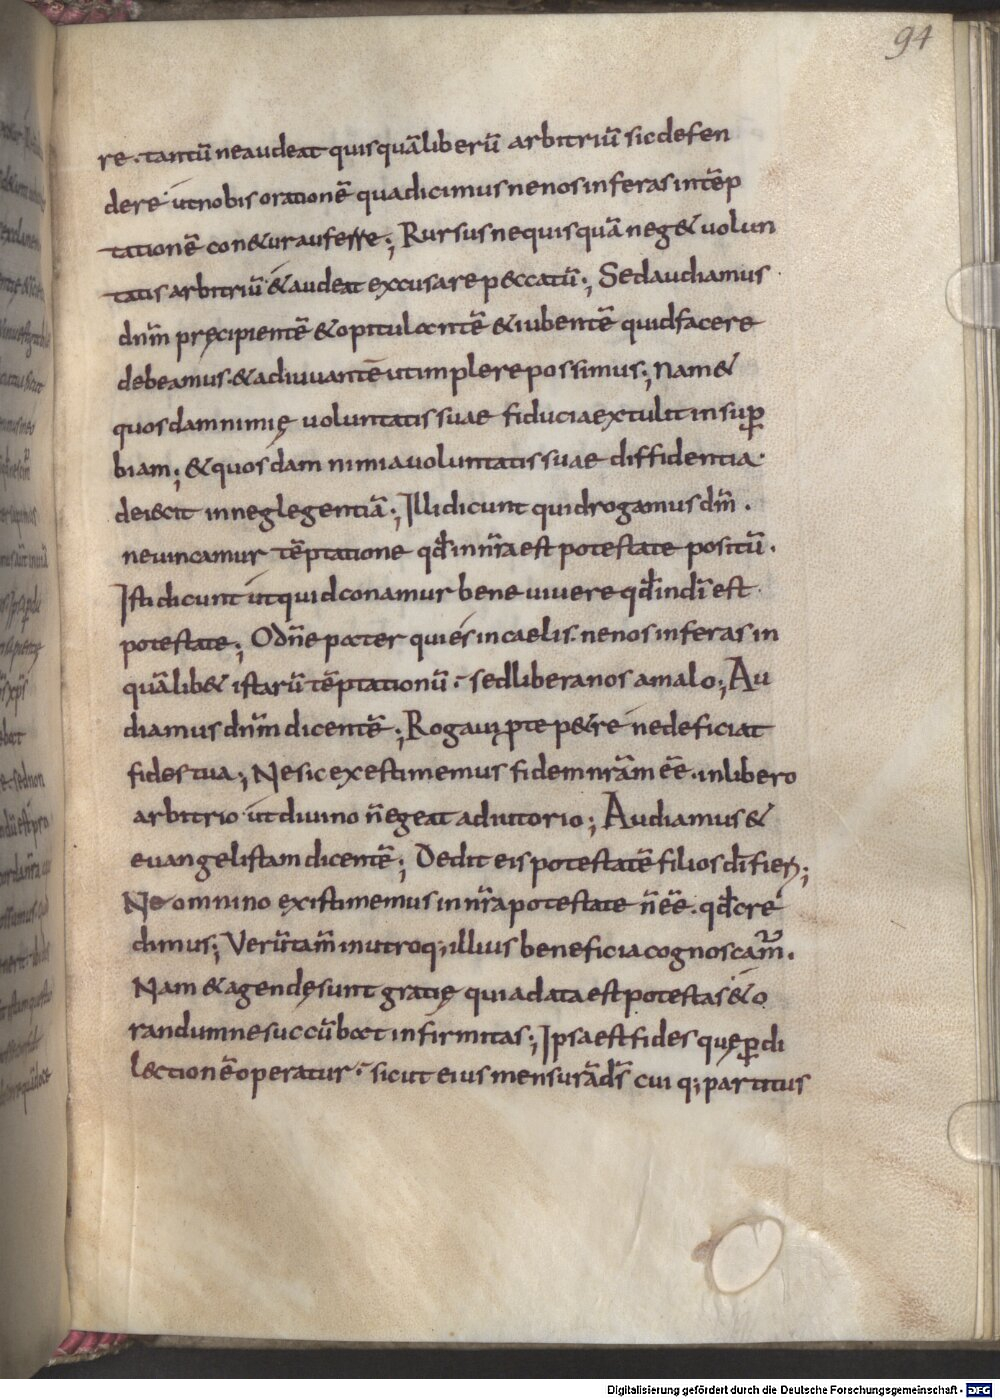 94
re. tantū ne audeat quisquā liberū arbitriū sic defen
dere ut nobis orationē qua dicimus ne nos inferas in tēp
tationē con&ur auferre; Rursus ne quisquā neg& volun
tatis arbitriū & audeat excusare peccatū; Sed audiamus
dnm̄ pręcipientē & opitulantē & iubentē quid facere
debeamus. & adiuvantē ut implere possimus; Nam &
quosdam nimię voluntatis suae fiducia extulit in sup̄
biam; & quosdam nimia voluntatis suae diffidentia
deiecit in neglegentiā; Illi dicunt quid rogamus dm̄.
ne vincamur tēptatione qđ in nr̄a est potestate positū.
Isti dicunt ut quid conamur bene vivere qđ in dī est
potestate; O dn̄e pater qui es in caelis. ne nos inferas in
quālib& istarū tēptationū. sed libera nos a malo; Au
diamus dnm̄ dicentē; Rogavi p̱ te p&re ne deficiat
fides tua; Ne sic existimemus fidem nr̄am eē. in libero
arbitrio ut divino n̄ egeat adiutorio; Audiamus &
evangelistam dicentē; Dedit eis potestatē filios dī fieri;
Ne omnino existimemus in nr̄a potestate n̄ eē. qđ cre
dimus; Verūtam̄ in utroq; illius beneficia cognoscam̄.
Nam & agendę sunt gratię quia data est potestas & o
randum ne succūbat infirmitas; Ipsa est fides quę p̱ di
lectionē operatur. sicut eius mensurā ds̄ cuiq; partitus
Digitalisierung gefördert durch die Deutsche Forschungsgemeinschaft - DFG